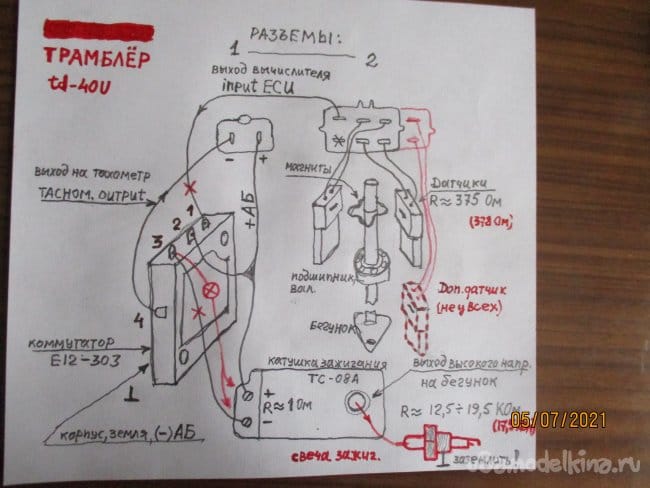 РАЗЪЕМЫ:
1 2
ТРАМБЛЁР
td-40U
выход вычислителя
input ECU
*
- +
выход на тахометр
TACHOM. OUTPUT
+АБ
магниты
Датчики
R≈375 Ом
(378 Ом)
3 2 1
подшипник,
вал.
Доп.датчик
(не у всех)
4
бегунок
коммутатор
E12-303
⊥
катушка зажигания
TC-08A
выход высокого напр.
на бегунок
+
R≈1 Ом
-
R≈12,5÷19,5 КОм
05/07/2021
корпус, земля, (-)АБ
свеча зажиг.
⊥ заземлить!
samodelkina.ru